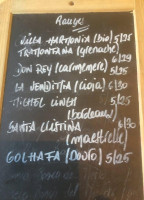 Rouge
Villa Harmonia (bio) 5/25
Tramontana (grenache)
6/29
Don Rey (carmenere) 5/25
La Venditta (rioja) 6/30
Michel Lynch 5/25
(bordeaux)
Santa Cristina 6/30
GOLHAFA (Douro) 5/25